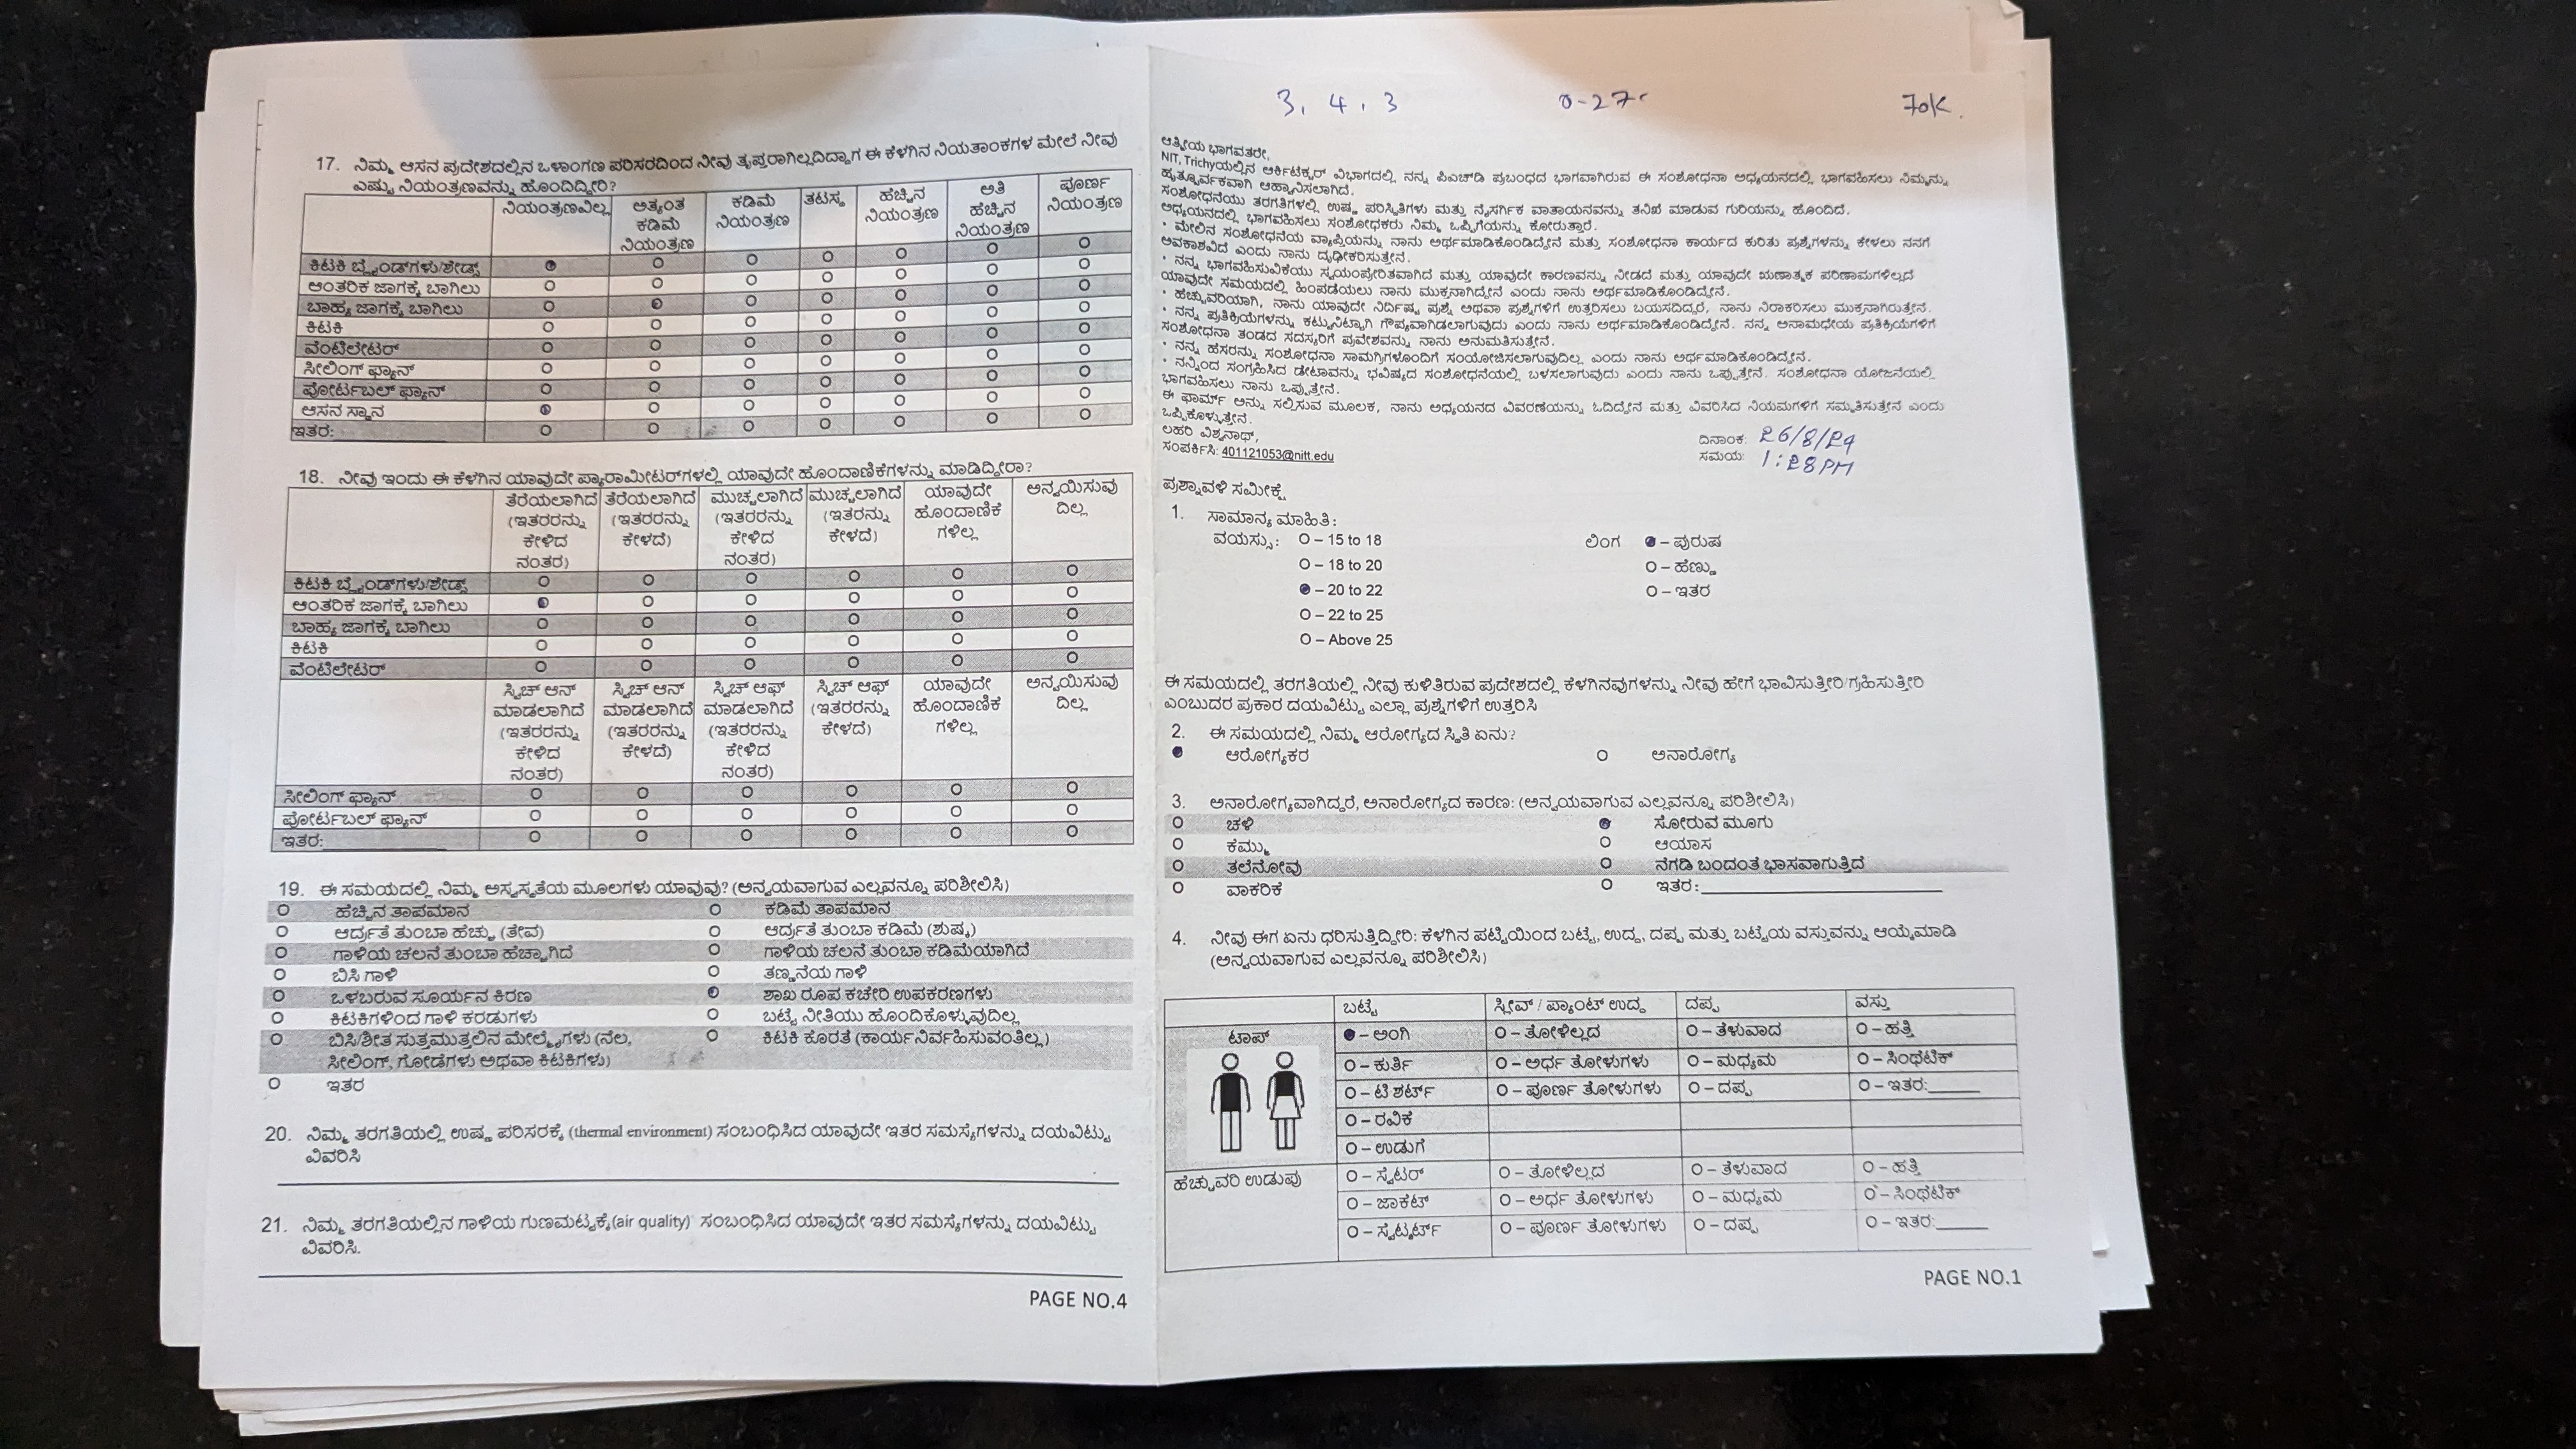 17. ನಿಮ್ಮ ಆಸನ ಪ್ರದೇಶದಲ್ಲಿನ ಒಳಾಂಗಣ ಪರಿಸರದಿಂದ ನೀವು ತೃಪ್ತರಾಗಿಲ್ಲದಿದ್ದಾಗ ಈ ಕೆಳಗಿನ ನಿಯತಾಂಕಗಳ ಮೇಲೆ ನೀವು
ಎಷ್ಟು ನಿಯಂತ್ರಣವನ್ನು ಹೊಂದಿದ್ದೀರಿ?
ನಿಯಂತ್ರಣವಿಲ್ಲ ಅತ್ಯಂತ ಕಡಿಮೆ ನಿಯಂತ್ರಣ ಕಡಿಮೆ ನಿಯಂತ್ರಣ ತಟಸ್ಥ ಹೆಚ್ಚಿನ ನಿಯಂತ್ರಣ ಅತಿ ಹೆಚ್ಚಿನ ನಿಯಂತ್ರಣ ಪೂರ್ಣ ನಿಯಂತ್ರಣ
ಕಿಟಕಿ ಬ್ಲೈಂಡ್‌ಗಳು/ಶೇಡ್ಸ್
ಆಂತರಿಕ ಜಾಗಕ್ಕೆ ಬಾಗಿಲು
ಬಾಹ್ಯ ಜಾಗಕ್ಕೆ ಬಾಗಿಲು
ಕಿಟಕಿ
ವೆಂಟಿಲೇಟರ್
ಸೀಲಿಂಗ್ ಫ್ಯಾನ್
ಪೋರ್ಟಬಲ್ ಫ್ಯಾನ್
ಆಸನ ಸ್ಥಾನ
ಇತರ:
18. ನೀವು ಇಂದು ಈ ಕೆಳಗಿನ ಯಾವುದೇ ಪ್ಯಾರಾಮೀಟರ್‌ಗಳಲ್ಲಿ ಯಾವುದೇ ಹೊಂದಾಣಿಕೆಗಳನ್ನು ಮಾಡಿದ್ದೀರಾ?
ತೆರೆಯಲಾಗಿದೆ (ಇತರರನ್ನು ಕೇಳಿದ ನಂತರ) ತೆರೆಯಲಾಗಿದೆ (ಇತರರನ್ನು ಕೇಳದೆ) ಮುಚ್ಚಲಾಗಿದೆ (ಇತರರನ್ನು ಕೇಳಿದ ನಂತರ) ಮುಚ್ಚಲಾಗಿದೆ (ಇತರನ್ನು ಕೇಳದೆ) ಯಾವುದೇ ಹೊಂದಾಣಿಕೆ ಗಳಿಲ್ಲ ಅನ್ವಯಿಸುವು ದಿಲ್ಲ
ಕಿಟಕಿ ಬ್ಲೈಂಡ್‌ಗಳು/ಶೇಡ್ಸ್
ಆಂತರಿಕ ಜಾಗಕ್ಕೆ ಬಾಗಿಲು
ಬಾಹ್ಯ ಜಾಗಕ್ಕೆ ಬಾಗಿಲು
ಕಿಟಕಿ
ವೆಂಟಿಲೇಟರ್
ಸ್ವಿಚ್ ಆನ್ ಮಾಡಲಾಗಿದೆ (ಇತರರನ್ನು ಕೇಳಿದ ನಂತರ) ಸ್ವಿಚ್ ಆನ್ ಮಾಡಲಾಗಿದೆ (ಇತರರನ್ನು ಕೇಳದೆ) ಸ್ವಿಚ್ ಆಫ್ ಮಾಡಲಾಗಿದೆ (ಇತರರನ್ನು ಕೇಳಿದ ನಂತರ) ಸ್ವಿಚ್ ಆಫ್ (ಇತರರನ್ನು ಕೇಳದೆ) ಯಾವುದೇ ಹೊಂದಾಣಿಕೆ ಗಳಿಲ್ಲ ಅನ್ವಯಿಸುವು ದಿಲ್ಲ
ಸೀಲಿಂಗ್ ಫ್ಯಾನ್
ಪೋರ್ಟಬಲ್ ಫ್ಯಾನ್
ಇತರ:
19. ಈ ಸಮಯದಲ್ಲಿ ನಿಮ್ಮ ಅಸ್ವಸ್ಥತೆಯ ಮೂಲಗಳು ಯಾವುವು? (ಅನ್ವಯವಾಗುವ ಎಲ್ಲವನ್ನೂ ಪರಿಶೀಲಿಸಿ)
ಹೆಚ್ಚಿನ ತಾಪಮಾನ ಕಡಿಮೆ ತಾಪಮಾನ
ಆರ್ದ್ರತೆ ತುಂಬಾ ಹೆಚ್ಚು (ತೇವ) ಆರ್ದ್ರತೆ ತುಂಬಾ ಕಡಿಮೆ (ಶುಷ್ಕ)
ಗಾಳಿಯ ಚಲನೆ ತುಂಬಾ ಹೆಚ್ಚಾಗಿದೆ ಗಾಳಿಯ ಚಲನೆ ತುಂಬಾ ಕಡಿಮೆಯಾಗಿದೆ
ಬಿಸಿ ಗಾಳಿ ತಣ್ಣನೆಯ ಗಾಳಿ
ಒಳಬರುವ ಸೂರ್ಯನ ಕಿರಣ ಶಾಖ ರೂಪ ಕಚೇರಿ ಉಪಕರಣಗಳು
ಕಿಟಕಿಗಳಿಂದ ಗಾಳಿ ಕರಡುಗಳು ಬಟ್ಟೆ ನೀತಿಯು ಹೊಂದಿಕೊಳ್ಳುವುದಿಲ್ಲ
ಬಿಸಿ/ಶೀತ ಸುತ್ತಮುತ್ತಲಿನ ಮೇಲ್ಮೈಗಳು (ನೆಲ, ಕಿಟಕಿ ಕೊರತೆ (ಕಾರ್ಯನಿರ್ವಹಿಸುವಂತಿಲ್ಲ)
ಸೀಲಿಂಗ್, ಗೋಡೆಗಳು ಅಥವಾ ಕಿಟಕಿಗಳು)
ಇತರ
20. ನಿಮ್ಮ ತರಗತಿಯಲ್ಲಿ ಉಷ್ಣ ಪರಿಸರಕ್ಕೆ (thermal environment) ಸಂಬಂಧಿಸಿದ ಯಾವುದೇ ಇತರ ಸಮಸ್ಯೆಗಳನ್ನು ದಯವಿಟ್ಟು
ವಿವರಿಸಿ
21. ನಿಮ್ಮ ತರಗತಿಯಲ್ಲಿನ ಗಾಳಿಯ ಗುಣಮಟ್ಟಕ್ಕೆ(air quality) ಸಂಬಂಧಿಸಿದ ಯಾವುದೇ ಇತರ ಸಮಸ್ಯೆಗಳನ್ನು ದಯವಿಟ್ಟು
ವಿವರಿಸಿ.
PAGE NO.4
3, 4, 3
ಆತ್ಮೀಯ ಭಾಗವತರೇ,
NIT, Trichyಯಲ್ಲಿನ ಆರ್ಕಿಟೆಕ್ಚರ್ ವಿಭಾಗದಲ್ಲಿ ನನ್ನ ಪಿಎಚ್‌ಡಿ ಪ್ರಬಂಧದ ಭಾಗವಾಗಿರುವ ಈ ಸಂಶೋಧನಾ ಅಧ್ಯಯನದಲ್ಲಿ ಭಾಗವಹಿಸಲು ನಿಮ್ಮನ್ನು
ಹೃತ್ಪೂರ್ವಕವಾಗಿ ಆಹ್ವಾನಿಸಲಾಗಿದೆ.
ಸಂಶೋಧನೆಯು ತರಗತಿಗಳಲ್ಲಿ ಉಷ್ಣ ಪರಿಸ್ಥಿತಿಗಳು ಮತ್ತು ನೈಸರ್ಗಿಕ ವಾತಾಯನವನ್ನು ತನಿಖೆ ಮಾಡುವ ಗುರಿಯನ್ನು ಹೊಂದಿದೆ.
ಅಧ್ಯಯನದಲ್ಲಿ ಭಾಗವಹಿಸಲು ಸಂಶೋಧಕರು ನಿಮ್ಮ ಒಪ್ಪಿಗೆಯನ್ನು ಕೋರುತ್ತಾರೆ.
• ಮೇಲಿನ ಸಂಶೋಧನೆಯ ವ್ಯಾಪ್ತಿಯನ್ನು ನಾನು ಅರ್ಥಮಾಡಿಕೊಂಡಿದ್ದೇನೆ ಮತ್ತು ಸಂಶೋಧನಾ ಕಾರ್ಯದ ಕುರಿತು ಪ್ರಶ್ನೆಗಳನ್ನು ಕೇಳಲು ನನಗೆ
ಅವಕಾಶವಿದೆ ಎಂದು ನಾನು ದೃಢೀಕರಿಸುತ್ತೇನೆ.
• ನನ್ನ ಭಾಗವಹಿಸುವಿಕೆಯು ಸ್ವಯಂಪ್ರೇರಿತವಾಗಿದೆ ಮತ್ತು ಯಾವುದೇ ಕಾರಣವನ್ನು ನೀಡದೆ ಮತ್ತು ಯಾವುದೇ ಋಣಾತ್ಮಕ ಪರಿಣಾಮಗಳಿಲ್ಲದೆ
ಯಾವುದೇ ಸಮಯದಲ್ಲಿ ಹಿಂಪಡೆಯಲು ನಾನು ಮುಕ್ತನಾಗಿದ್ದೇನೆ ಎಂದು ನಾನು ಅರ್ಥಮಾಡಿಕೊಂಡಿದ್ದೇನೆ.
• ಹೆಚ್ಚುವರಿಯಾಗಿ, ನಾನು ಯಾವುದೇ ನಿರ್ದಿಷ್ಟ ಪ್ರಶ್ನೆ ಅಥವಾ ಪ್ರಶ್ನೆಗಳಿಗೆ ಉತ್ತರಿಸಲು ಬಯಸದಿದ್ದರೆ, ನಾನು ನಿರಾಕರಿಸಲು ಮುಕ್ತನಾಗಿರುತ್ತೇನೆ.
• ನನ್ನ ಪ್ರತಿಕ್ರಿಯೆಗಳನ್ನು ಕಟ್ಟುನಿಟ್ಟಾಗಿ ಗೌಪ್ಯವಾಗಿಡಲಾಗುವುದು ಎಂದು ನಾನು ಅರ್ಥಮಾಡಿಕೊಂಡಿದ್ದೇನೆ. ನನ್ನ ಅನಾಮಧೇಯ ಪ್ರತಿಕ್ರಿಯೆಗಳಿಗೆ
ಸಂಶೋಧನಾ ತಂಡದ ಸದಸ್ಯರಿಗೆ ಪ್ರವೇಶವನ್ನು ನಾನು ಅನುಮತಿಸುತ್ತೇನೆ.
• ನನ್ನ ಹೆಸರನ್ನು ಸಂಶೋಧನಾ ಸಾಮಗ್ರಿಗಳೊಂದಿಗೆ ಸಂಯೋಜಿಸಲಾಗುವುದಿಲ್ಲ ಎಂದು ನಾನು ಅರ್ಥಮಾಡಿಕೊಂಡಿದ್ದೇನೆ.
• ನನ್ನಿಂದ ಸಂಗ್ರಹಿಸಿದ ಡೇಟಾವನ್ನು ಭವಿಷ್ಯದ ಸಂಶೋಧನೆಯಲ್ಲಿ ಬಳಸಲಾಗುವುದು ಎಂದು ನಾನು ಒಪ್ಪುತ್ತೇನೆ. ಸಂಶೋಧನಾ ಯೋಜನೆಯಲ್ಲಿ
ಭಾಗವಹಿಸಲು ನಾನು ಒಪ್ಪುತ್ತೇನೆ.
ಈ ಫಾರ್ಮ್ ಅನ್ನು ಸಲ್ಲಿಸುವ ಮೂಲಕ, ನಾನು ಅಧ್ಯಯನದ ವಿವರಣೆಯನ್ನು ಓದಿದ್ದೇನೆ ಮತ್ತು ವಿವರಿಸಿದ ನಿಯಮಗಳಿಗೆ ಸಮ್ಮತಿಸುತ್ತೇನೆ ಎಂದು
ಒಪ್ಪಿಕೊಳ್ಳುತ್ತೇನೆ.
ಲಹರಿ ವಿಶ್ವನಾಥ್,
ಸಂಪರ್ಕಿಸಿ: 401121053@nitt.edu
ದಿನಾಂಕ: 26/8/24
ಸಮಯ: 1:28PM
ಪ್ರಶ್ನಾವಳಿ ಸಮೀಕ್ಷೆ
1. ಸಾಮಾನ್ಯ ಮಾಹಿತಿ:
ವಯಸ್ಸು: O – 15 to 18 ಲಿಂಗ – ಪುರುಷ
O – 18 to 20 O – ಹೆಣ್ಣು
– 20 to 22 O – ಇತರ
O – 22 to 25
O – Above 25
ಈ ಸಮಯದಲ್ಲಿ ತರಗತಿಯಲ್ಲಿ ನೀವು ಕುಳಿತಿರುವ ಪ್ರದೇಶದಲ್ಲಿ ಕೆಳಗಿನವುಗಳನ್ನು ನೀವು ಹೇಗೆ ಭಾವಿಸುತ್ತೀರಿ/ಗ್ರಹಿಸುತ್ತೀರಿ
ಎಂಬುದರ ಪ್ರಕಾರ ದಯವಿಟ್ಟು ಎಲ್ಲಾ ಪ್ರಶ್ನೆಗಳಿಗೆ ಉತ್ತರಿಸಿ
2. ಈ ಸಮಯದಲ್ಲಿ ನಿಮ್ಮ ಆರೋಗ್ಯದ ಸ್ಥಿತಿ ಏನು?
ಆರೋಗ್ಯಕರ ಅನಾರೋಗ್ಯ
3. ಅನಾರೋಗ್ಯವಾಗಿದ್ದರೆ, ಅನಾರೋಗ್ಯದ ಕಾರಣ: (ಅನ್ವಯವಾಗುವ ಎಲ್ಲವನ್ನೂ ಪರಿಶೀಲಿಸಿ)
ಚಳಿ ಸೋರುವ ಮೂಗು
ಕೆಮ್ಮು ಆಯಾಸ
ತಲೆನೋವು ನೆಗಡಿ ಬಂದಂತೆ ಭಾಸವಾಗುತ್ತಿದೆ
ವಾಕರಿಕೆ ಇತರ:
4. ನೀವು ಈಗ ಏನು ಧರಿಸುತ್ತಿದ್ದೀರಿ: ಕೆಳಗಿನ ಪಟ್ಟಿಯಿಂದ ಬಟ್ಟೆ, ಉದ್ದ, ದಪ್ಪ ಮತ್ತು ಬಟ್ಟೆಯ ವಸ್ತುವನ್ನು ಆಯ್ಕೆಮಾಡಿ
(ಅನ್ವಯವಾಗುವ ಎಲ್ಲವನ್ನೂ ಪರಿಶೀಲಿಸಿ)
ಬಟ್ಟೆ ಸ್ಲೀವ್ / ಪ್ಯಾಂಟ್ ಉದ್ದ ದಪ್ಪ ವಸ್ತು
ಟಾಪ್ – ಅಂಗಿ O – ತೋಳಿಲ್ಲದ O – ತೆಳುವಾದ O – ಹತ್ತಿ
O – ಕುರ್ತಿ O – ಅರ್ಧ ತೋಳುಗಳು O – ಮಧ್ಯಮ O – ಸಿಂಥೆಟಿಕ್
O – ಟಿ ಶರ್ಟ್ O – ಪೂರ್ಣ ತೋಳುಗಳು O – ದಪ್ಪ O – ಇತರ:
O – ರವಿಕೆ
O – ಉಡುಗೆ
ಹೆಚ್ಚುವರಿ ಉಡುಪು O – ಸ್ವೆಟರ್ O – ತೋಳಿಲ್ಲದ O – ತೆಳುವಾದ O – ಹತ್ತಿ
O – ಜಾಕೆಟ್ O – ಅರ್ಧ ತೋಳುಗಳು O – ಮಧ್ಯಮ O – ಸಿಂಥೆಟಿಕ್
O – ಸ್ವೆಟ್ಶರ್ಟ್ O – ಪೂರ್ಣ ತೋಳುಗಳು O – ದಪ್ಪ O – ಇತರ:
PAGE NO.1